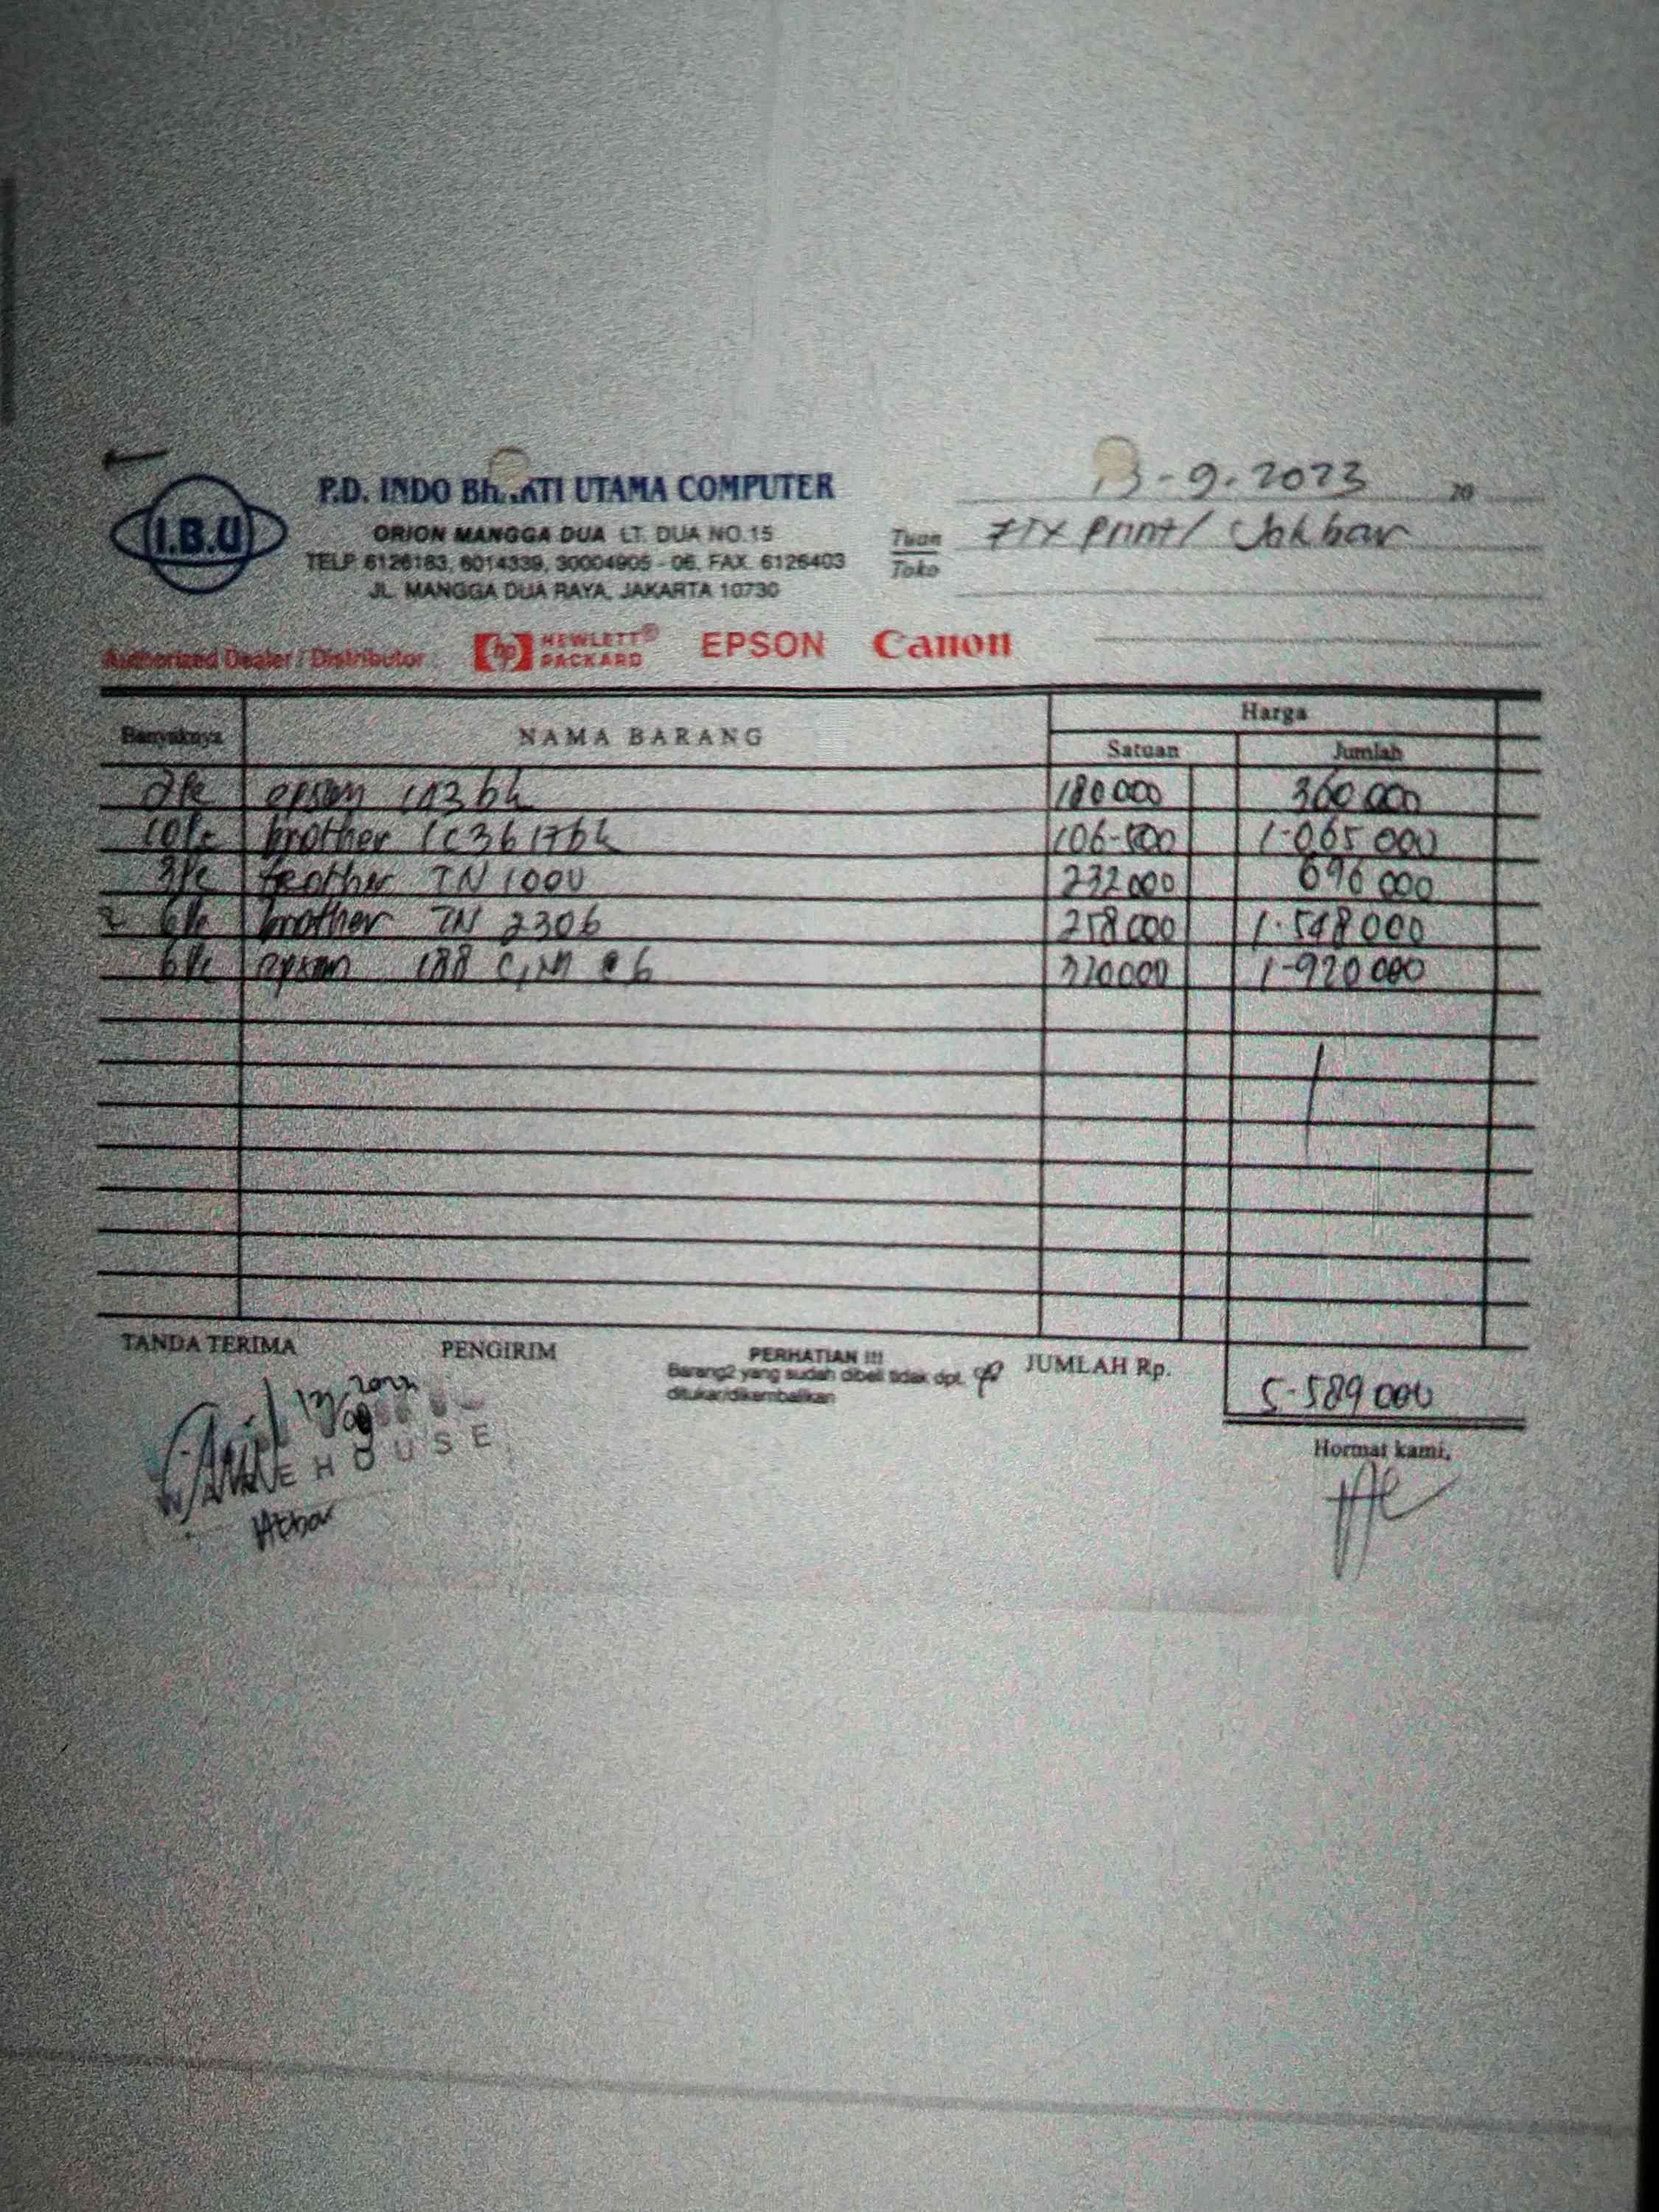 I.B.U
P.D. INDO BHAKTI UTAMA COMPUTER
ORION MANGGA DUA LT. DUA NO.15
TELP. 6126183, 6014339, 30004905 - 06, FAX. 6126403
JL. MANGGA DUA RAYA, JAKARTA 10730
13-9-2023 20
Tuan
Toko
Print / Jakbar
Authorized Dealer / Distributor hp HEWLETT® PACKARD EPSON Canon
Banyaknya NAMA BARANG Harga
Satuan Jumlah
2pc epson 180 000 360 000
10pc brother LC3617bk 106-500 1-065 000
3pc brother TN 1000 232 000 696 000
6pc brother TN 2306 258 000 1.548 000
6pc epson 320 000 1-920 000
TANDA TERIMA PENGIRIM PERHATIAN !!! JUMLAH Rp. 5-589 000
Barang2 yang sudah dibeli tidak dpt.
ditukar/dikembalikan
WAREHOUSE
Akbar
Hormat kami,